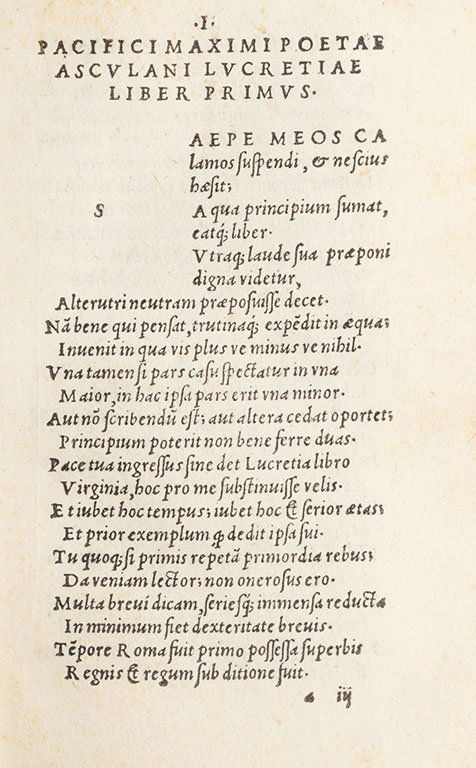 ·I·
PACIFICI MAXIMI POETAE
ASCULANI LVCRETIAE
LIBER PRIMVS·
S
AEPE MEOS CA
lamos suspendi, & nescius
hæsit;
A qua principium sumat,
eatq; liber·
Vtraq; laude sua præponi
digna videtur,
Alterutri neutram præposuisse decet·
Nā bene qui pensat, trutinaq; expēdit in æqua;
Inuenit in qua vis plus ve minus ve nihil·
Vna tamen si pars casu spectatur in vna
Maior, in hac ipsa pars erit vna minor·
Aut nō scribendū est; aut altera cedat oportet;
Principium poterit non bene ferre duas·
Pace tua ingressus sine det Lucretia libro
Virginia, hoc pro me substinuisse velis·
Et iubet hoc tempus; iubet hoc & serior ætas;
Et prior exemplum q dedit ipsa sui·
Tu quoq; si primis repetā primordia rebus;
Da veniam lector; non onerosus ero·
Multa breui dicam, seriesq; immensa reducta
In minimum fiet dexteritate breuis·
Tēpore Roma fuit primo possessa superbis
Regnis & regum sub ditione fuit·
a iij